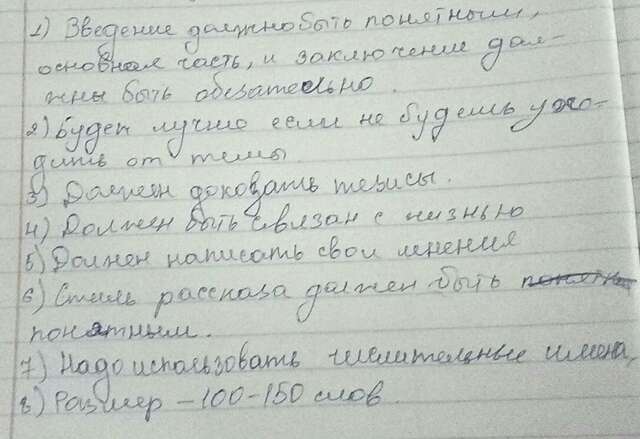 1) Введение должно быть понятным,
основная часть, и заключение дол-
жны быть обезательно.
2) Будет лучше если не будешь ухо-
дить от темы.
3) Должен доковать тезисы.
4) Должен быть связан с жизнью
5) Должен написать свои мнения
6) Стиль рассказа должен быть
понятным.
7) Надо использовать числительные имена,
8) Размер – 100-150 слов.